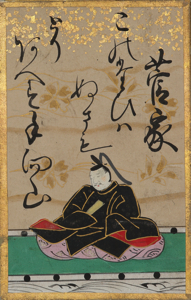 菅家
このたひハ
ぬさも
とり
あへす手向山